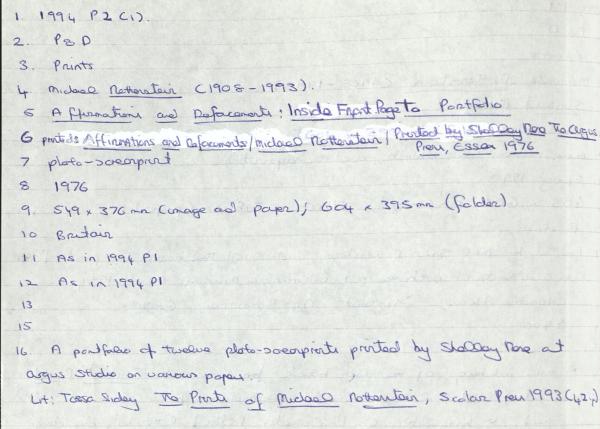 1. 1994 P2 (1).
2. P & D
3. Prints
4. Michael Rothenstein (1908-1993).
5 Affirmations and Defacements: Inside Front Page to Portfolio
6 printed: Affirmations and Defacements / Michael Rothenstein / Printed by Shelley Rose The Argus
Press, Essex 1976
7 photo-screenprint
8 1976
9. 549 x 376 mm (image and paper); 604 x 395 mm (folder)
10 Britain
11 As in 1994 P1
12 As in 1994 P1
13
15
16. A portfolio of twelve photo-screenprints printed by Shelley Rose at
Argus Studio on various papers.
Lit: Tessa Sidey The Prints of Michael Rothenstein, Scolar Press 1993 (42;)